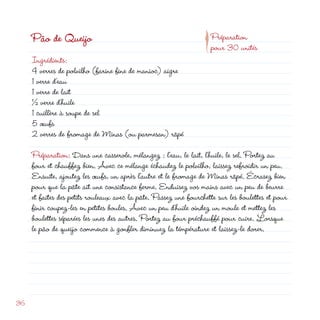 Pão de Queijo
Préparation
pour 30 unités
Ingrédients:
4 verres de polvilho (farine fine de manioc) aigre
1 verre d'eau
1 verre de lait
½ verre d'huile
1 cuillère à soupe de sel
5 œufs
2 verres de fromage de Minas (ou parmesan) râpé
Préparation: Dans une casserole, mélangez : l'eau, le lait, l'huile, le sel. Portez au
four et chauffez bien. Avec ce mélange échaudez le polvilho, laissez refroidir un peu.
Ensuite, ajoutez les œufs, un après l'autre et le fromage de Minas râpé. Écrasez bien
pour que la pâte ait une consistance ferme. Enduisez vos mains avec un peu de beurre
et faites des petits rouleaux avec la pâte. Passez une fourchette sur les boulettes et pour
finir coupez-les en petites boules. Avec un peu d'huile oindez un moule et mettez les
boulettes séparées les unes des autres. Portez au four préchauffé pour cuire. Lorsque
le pão de queijo commence à gonfler diminuez la température et laissez-le dorer.
36